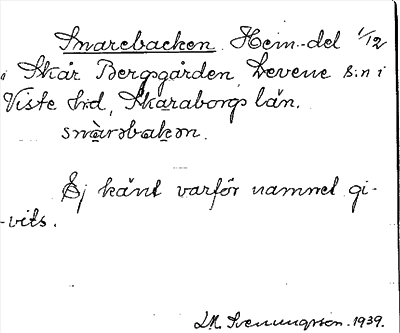 Snarebacken. Hem.-del 1/12
i Skår Bergsgården, Levene s:n i
Viste h:d, Skaraborgs län.
snàrəbakən.
Ej känt varför namnet gi-
-vits.
J.M. Svenungsson. 1939.